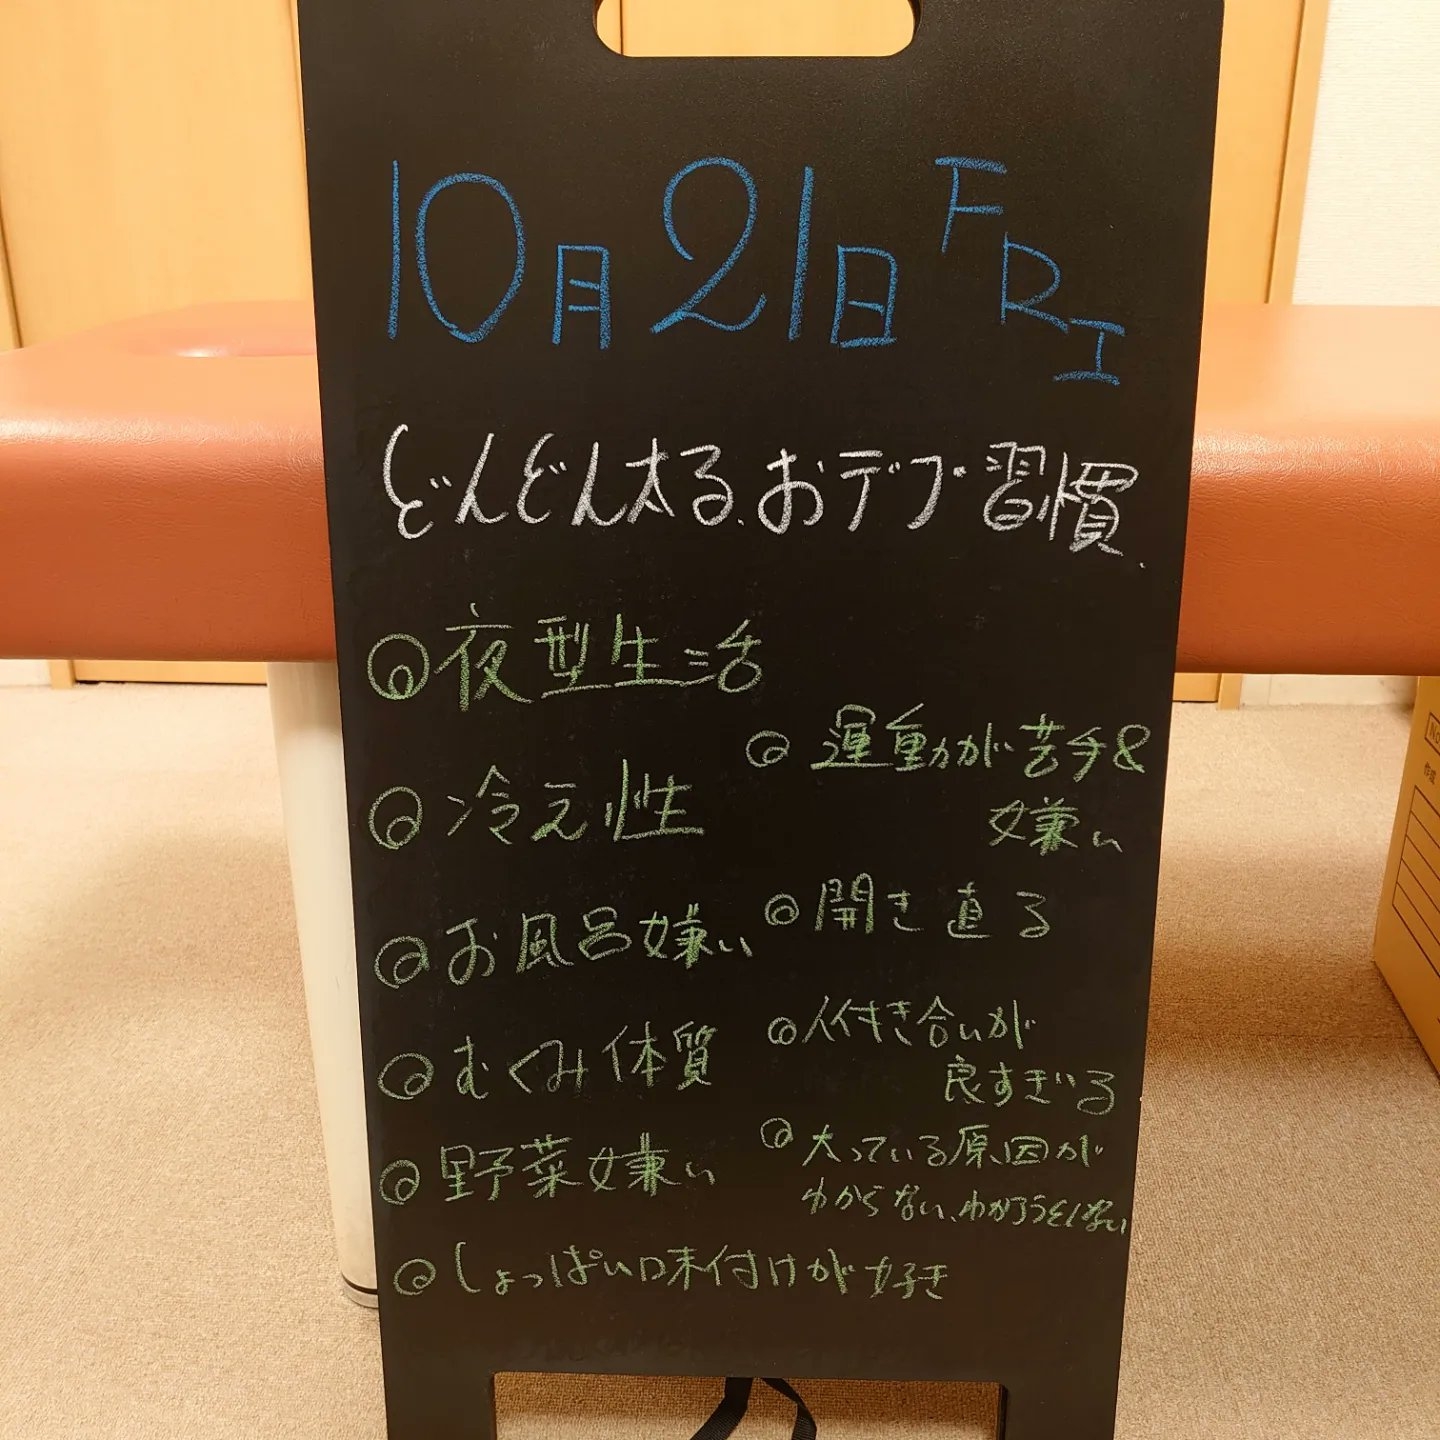 10月21日 FRI
どんどん太る、おデブ習慣、
◎夜型生活
◎冷え性
◎お風呂嫌い
◎むくみ体質
◎野菜嫌い
◎しょっぱい味付けが好き
◎運動が苦手&
嫌い
◎開き直る
◎人付き合いが
良すぎいる
◎太っている原因が
わからない、わかろうとしない
No
作成